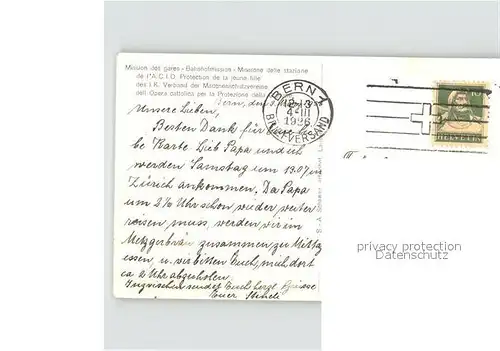 Mission des gares - Bahnhofmission - Missione delle stazione
de l'A.C.I.D. Protection de la jeune fille
des I.K. Verband der Mädchenschutzvereine
dell Opera cattolica per la Protezione della
Bern, den
Unsere Lieben,
Besten Dank für Eure liebe
Karte. Lieb Papa und ich
werden Samstag um 13.07 in
Zürich ankommen. Da Papa
um 2 Uhr schon wieder weiter
reisen muss, werden wir im
Metzgerbräu zusammen zu Mittg
essen, u. wir bitten Euch, mich dort
ca 2 Uhr abzuholen.
Inzwischen sendet Euch herzl. Grüsse
Euer
BERN 1
4-III
1926
BRIEFVERSAND
10
HELVETIA
privacy protection
Datenschutz